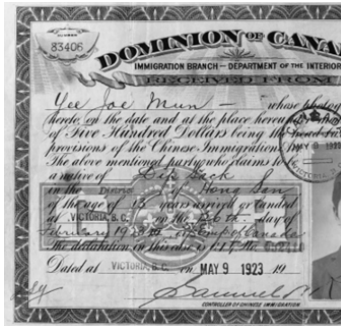 83406
DOMINION OF CANA
IMMIGRATION BRANCH – DEPARTMENT OF THE INTERIOR
RECEIVED FROM
Yee Joe Mun – whose photog
hereto, on the date and at the place hereunder
of Five Hundred Dollars being the head tax
provisions of the Chinese Immigration
The above mentioned party who claims to be
a native of Dik Sack
in the District Hong San
of the age of 13 years arrived or landed
at VICTORIA, B.C. on the day of
February 1923 Emp of Canada
The declaration in this case is C.I.
Dated at VICTORIA, B.C. on MAY 9 1923 19
CONTROLLER OF CHINESE IMMIGRATION